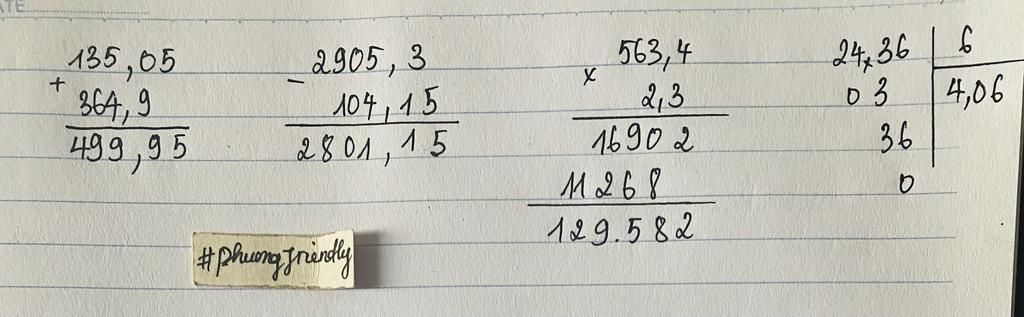 ATE
135,05
+
364,9
499,95
2905,3
−
104,15
2801,15
563,4
x
2,3
16902
11268
129.582
24,36 6
03 4,06
36
0
#phuongfriendly